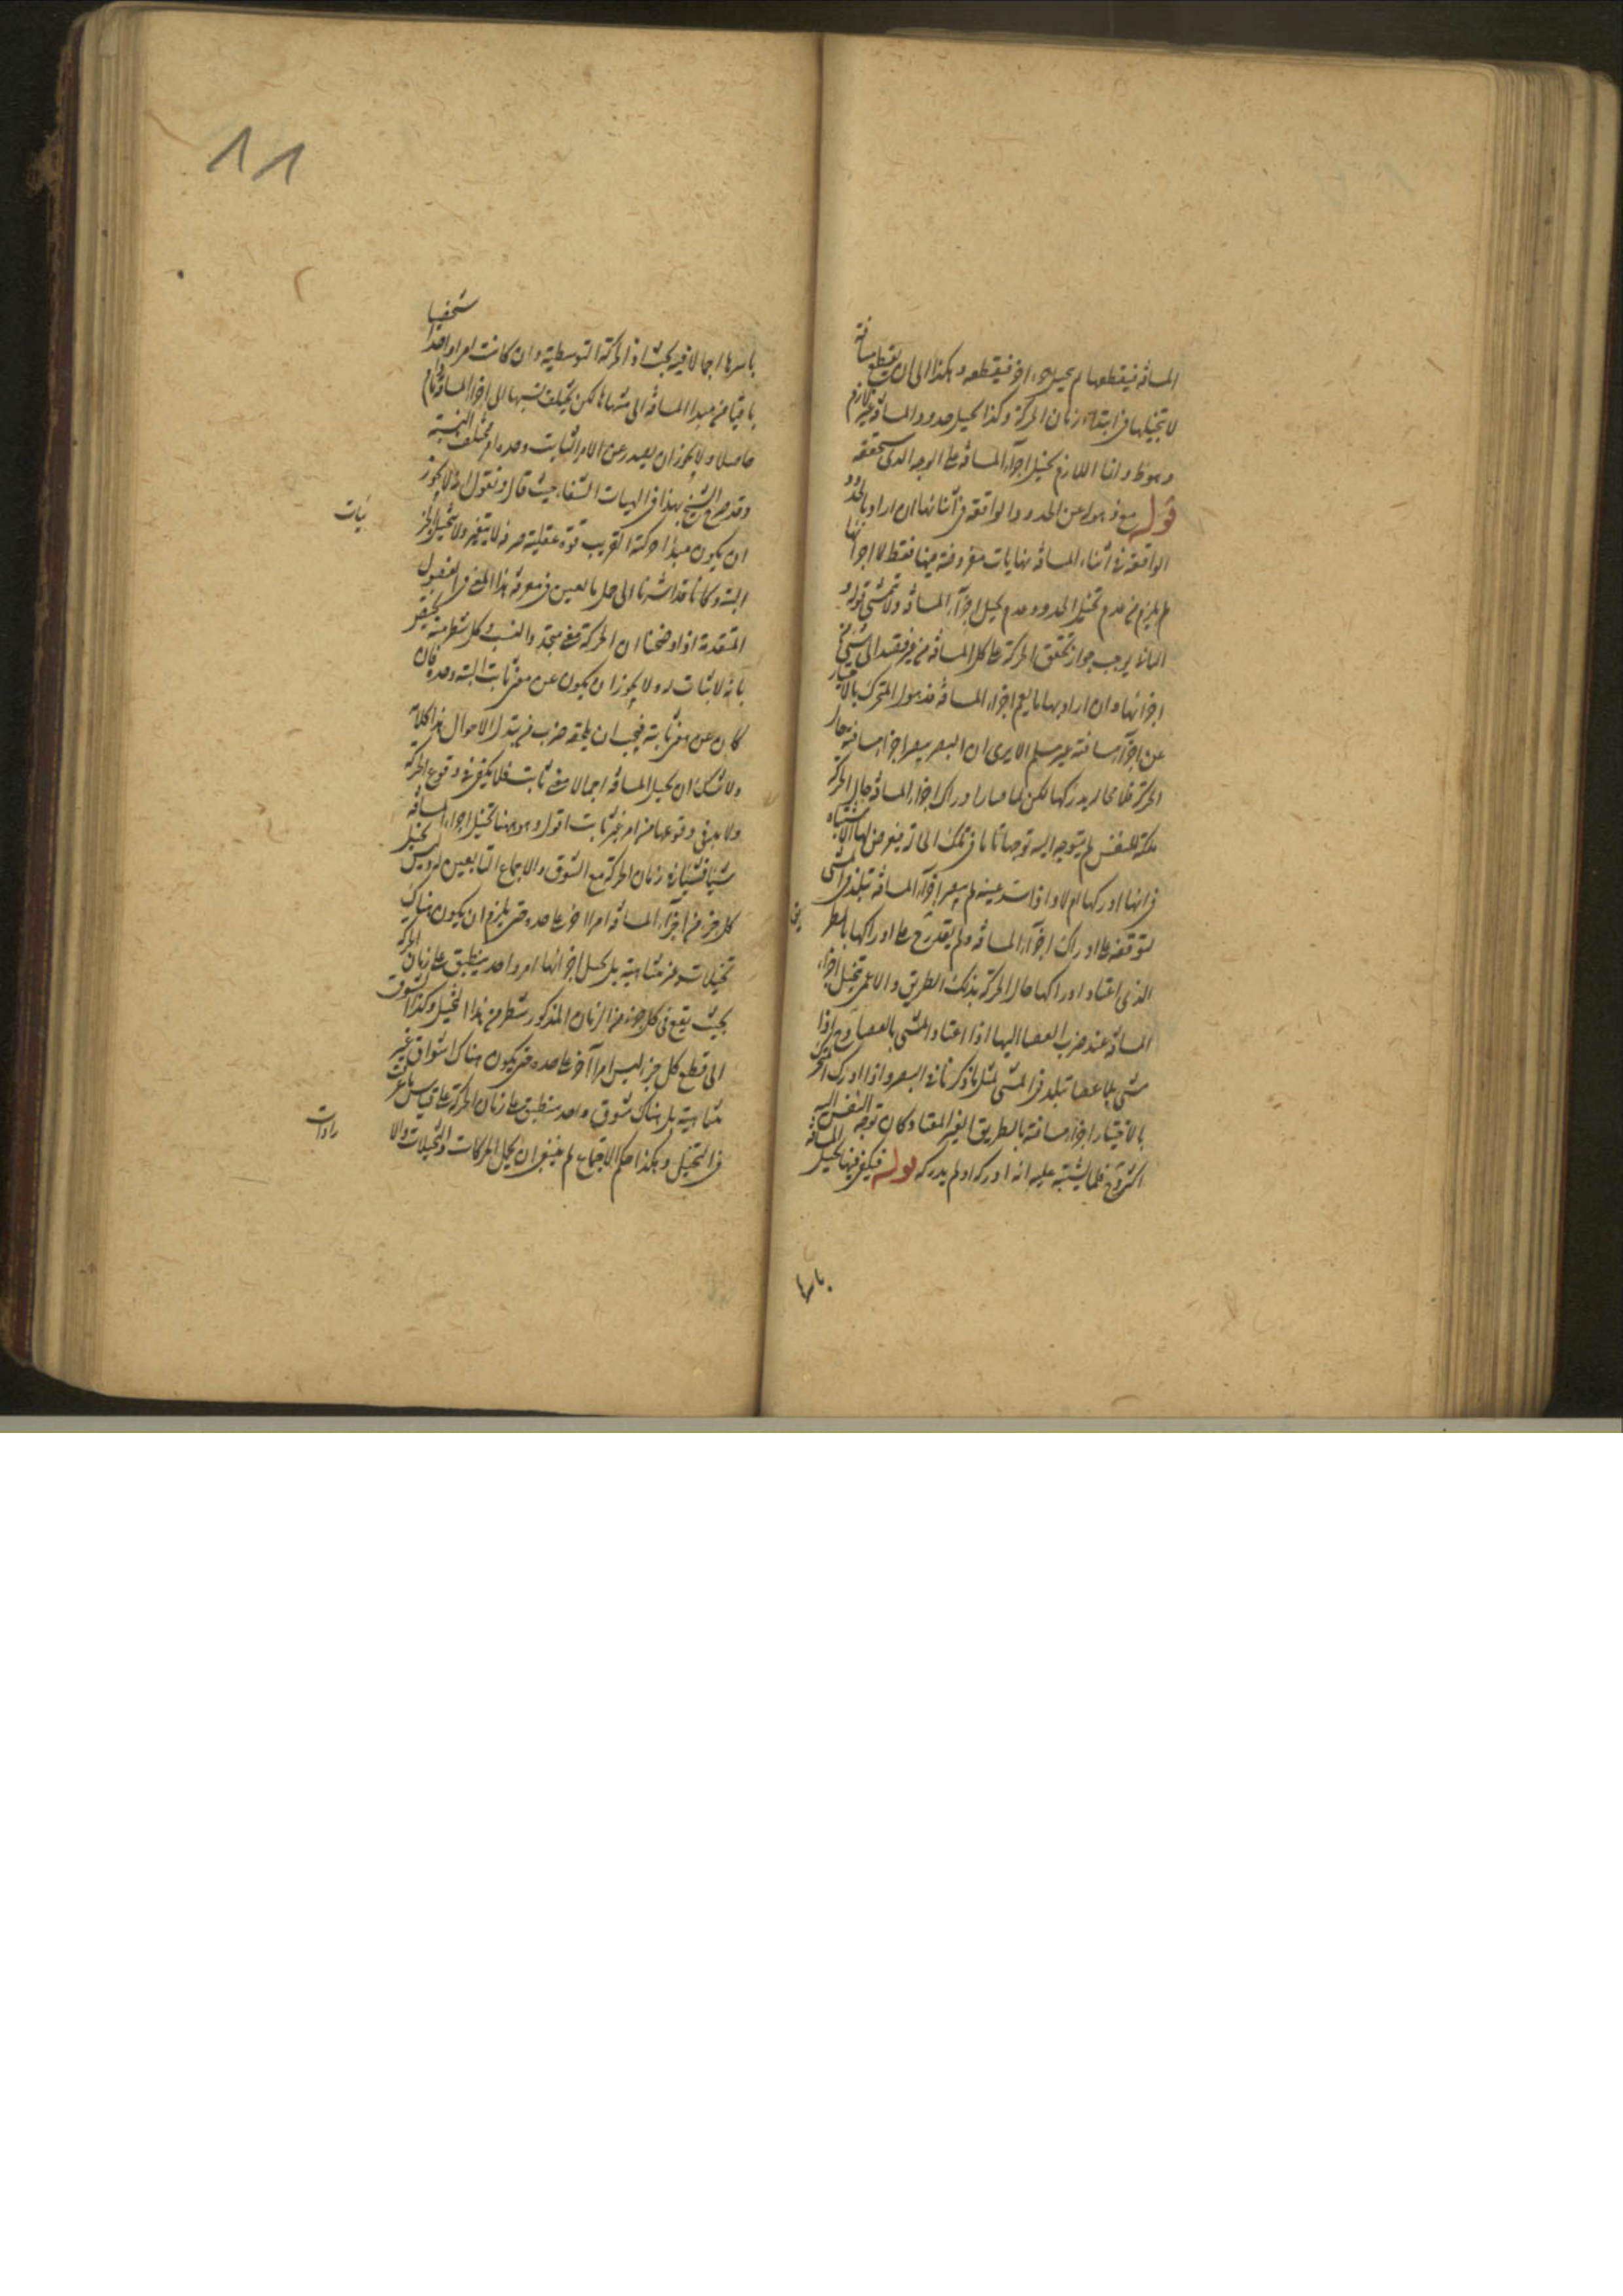 المسافة فيقطعها ثم يتخيل جزء اخر فيقطعه وهكذا الى ان ينقطع مسافة
لا يتخيلها في ابتداء زمان الحركة وكذا تخيل حدود المسافة غير لازم
وهو ظ وانما اللازم تخيل اجزاء المسافة على الوجه الذي سنحققه
قوله مع ذهوله عن الحدود الواقعة في اثنائها ان اراد بالحدود
الواقعة في اثناء المسافة نهايات مفروضة فيها فقط لا اجزائها
لم يلزم من عدم تخيل الحدود عدم تخيل اجزاء المسافة ولا تمشى قوله و
ايضا يوجب جواز تحقق الحركة على كل المسافة من غير قصد الى شيء من
اجزائها وان اراد بها ما يعم اجزاء المسافة فذهول المتحرك بالاختيار
عن اجزاء مسافته غير مسلم الا يرى ان البصير يبصر اجزاء مسافته حال
الحركة فلا محالة يدركها لكن لما صار ادراك اجزاء المسافة حال الحركة
ملكة للنفس لم يتوجه اليه توجها تاما في تلك الحال فيعرض لها الاشتباه
في انها ادركها ام لا واذا سد عينه لم يبصر اجزاء المسافة تبلد في المشي
لتوقفه على ادراك اجزاء المسافة ولم يقدر ح على ادراكها بالطر
يق
الذي اعتاد ادراكها حال الحركة بذلك الطريق والاعمى يتخيل اجزاء
المسافة عند ضرب العصا اليها اذا اعتاد المشي بالعصا وح اذا
مشى بلا عصا تبلد في المشي لمثل ما ذكرنا في البصير واذا ادرك المتحرك
بالاختيار اجزاء مسافته بالطريق الغير المعتاد كان توجه النفس اليه
اكثر وح فلما يشتبه عليه انه ادركه او لم يدركه قوله فيكفي فيها تخيل المسافة
باسرها
باسرها اجمالا فيه بحث اذ الحركة التوسطية وان كانت امرا واحدا شخصيا
باقيا من مبدا المسافة الى منتهاها لكن يختلف نسبتها الى اجزاء المسافة
حاصلا ولا يجوز ان يصدر عن الامر الثابت وحده امر مختلف النسبة
وقد صرح الشيخ بهذا في الهيات الشفاء حيث قال ونقول انه لا يجوز
ان يكون مبدا حركته القريب قوة عقلية صرفة لا يتغير ولا يتخيل الجز
ئيات
البتة وكانا قد اشرنا الى جمل مما يعين في معرفة هذا المعنى في الفصول
المتقدمة اذ اوضحنا ان الحركة معنى متجدد النسب وكل شطر منه مختص
بانه لا ثبات له ولا يجوز ان يكون عن معنى ثابت البتة وحده فان
كان عن معنى ثابت فيجب ان يلحقه ضرب من تبدل الاحوال هذا كلامه
ولا شك ان تخيل المسافة اجمالا معنى ثابت فلا يكفي في وقوع الحركة
ولا بد في وقوعها من امر غير ثابت اقول وهو ههنا تخيل اجزاء المسافة
شيئا فشيئا في زمان الحركة مع الشوق والاجماع التابعين له وليس تخيل
كل جزء من اجزاء المسافة امرا اخر على حده حتى يلزم ان يكون هناك
تخيلات غير متناهية بل تخيل اجزائها امر واحد ينطبق على زمان الحركة
بحيث يقع في كل جزء من الزمان المذكور شطر من هذا التخيل وكذا الشوق
الى قطع كل جزء ليس امرا آخر على حده حتى يكون هناك اشواق غير
متناهية بل هناك شوق واحد منطبق على زمان الحركة على قياس ما عرفت
في التخيل وهكذا حكم الاجماع ثم ينبغي ان يحل الحركات والتخيلات والا
رادات